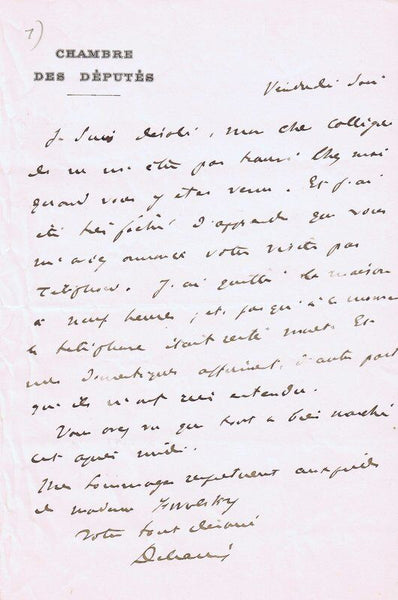 1)
CHAMBRE
DES DÉPUTÉS
Vendredi soir
Je suis désolé, mon cher collègue
de ne m'être pas trouvé chez moi
quand vous y êtes venu. Et j'ai
été très fâché d'apprendre que vous
m'aviez annoncé votre visite par
téléphone. J'ai quitté la maison
à neuf heures, et, jusqu'à ce moment
le téléphone était resté muet. Et
mes domestiques affirment, d'autre part
qu'ils n'ont rien entendu.
Vous avez vu que tout a bien marché
cet après midi.
Mes hommages respectueux aux pieds
de madame
Votre tout dévoué